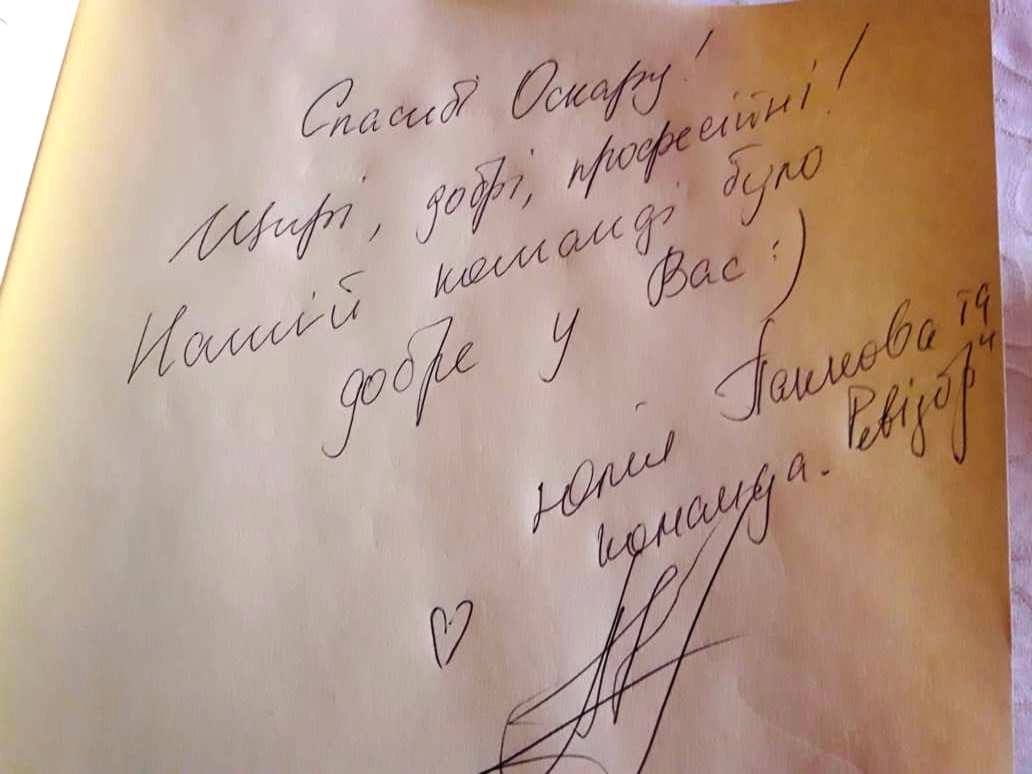 Спасибі Оскару!
Щирі, добрі, професійні!
Нашій команді було
добре у Вас :)
Юлія Панкова та
команда. Ревізор